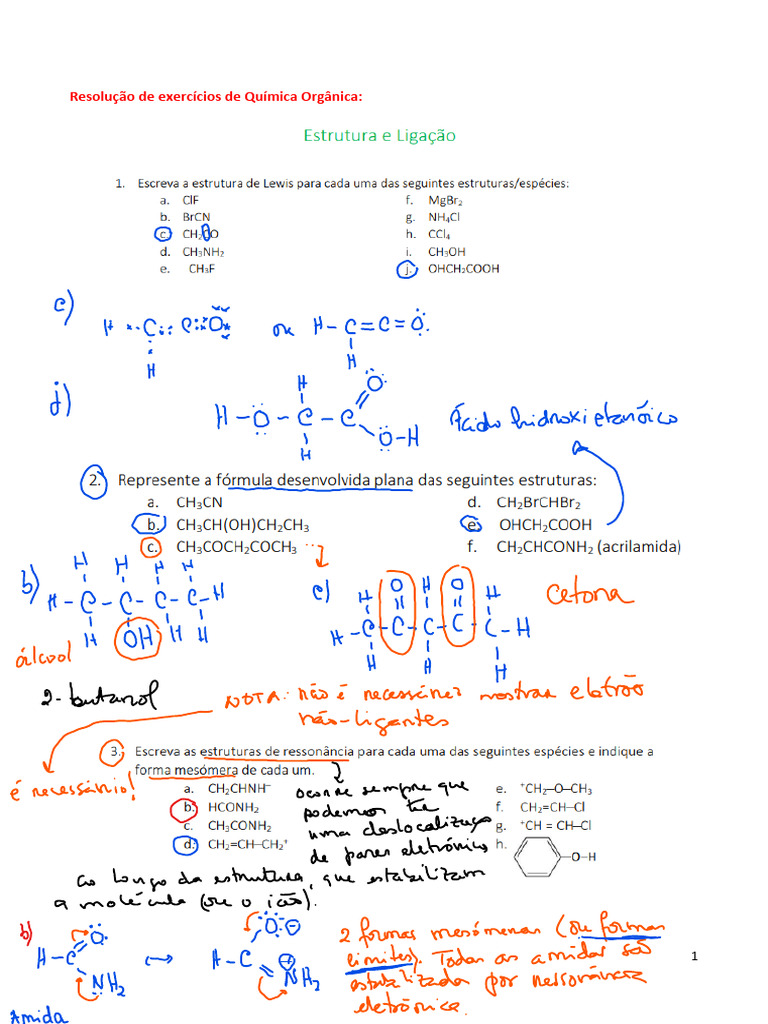 Resolução de exercícios de Química Orgânica:
Estrutura e Ligação
1. Escreva a estrutura de Lewis para cada uma das seguintes estruturas/espécies:
a. ClF f. MgBr₂
b. BrCN g. NH₄Cl
c. CH₂CO h. CCl₄
d. CH₃NH₂ i. CH₃OH
e. CH₃F j. OHCH₂COOH
c)
H C C O ou H-C=C=O
H H
j)
H O
H-O-C-C
H O-H
Ácido hidroxietanóico
2. Represente a fórmula desenvolvida plana das seguintes estruturas:
a. CH₃CN d. CH₂BrCHBr₂
b. CH₃CH(OH)CH₂CH₃ e. OHCH₂COOH
c. CH₃COCH₂COCH₃ f. CH₂CHCONH₂ (acrilamida)
b) H H H H
H-C-C-C-C-H
H OH H H
álcool
2-butanol
c) H O H O H
H-C-C-C-C-C-H
H H H
cetona
NOTA: não é necessário mostrar eletrão
não-ligantes
3. Escreva as estruturas de ressonância para cada uma das seguintes espécies e indique a
forma mesómera de cada um.
é necessário!
a. CH₂CHNH⁻ e. ⁺CH₂–O–CH₃
b. HCONH₂ f. CH₂=CH–Cl
c. CH₃CONH₂ g. ⁺CH = CH–Cl
d. CH₂=CH–CH₂⁺ h. O–H
ocorre sempre que
podemos ter
uma deslocalização
de pares eletrónicos
ao longo da estrutura, que estabilizam
a molécula (ou o ião).
b) O O ⊖
H-C ↔ H-C ⊕
NH₂ NH₂
Amida
2 formas mesómeras (ou formas
limites). Todas as amidas são
estabilizada por ressonância
eletrónica.
1